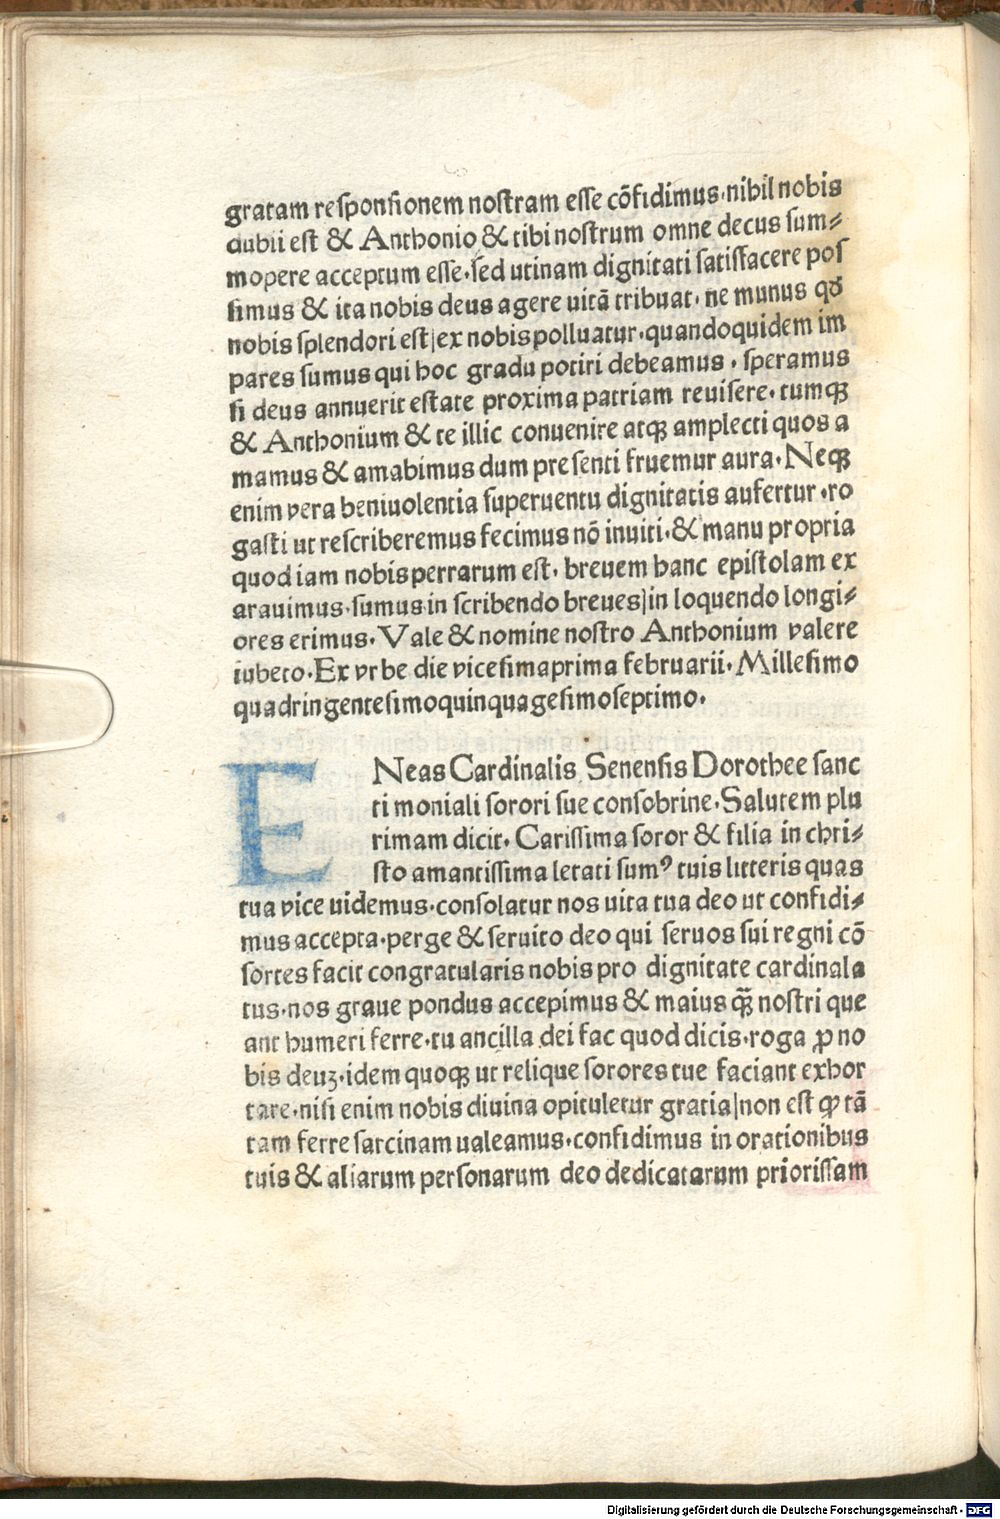 gratam reſponſionem noſtram eſſe cōfidimus·nihil nobis
dubii eſt & Anthonio & tibi noſtrum omne decus ſum⸗
mopere acceptum eſſe·ſed utinam dignitati ſatiſfacere poſ
ſimus & ita nobis deus agere uitā tribuat· ne munus qđ
nobis ſplendori eſt|ex nobis polluatur·quandoquidem im
pares ſumus qui hoc gradu potiri debeamus · ſperamus
ſi deus annuerit eſtate proxima patriam reuiſere· tumqꝫ
& Anthonium & te illic conuenire atqꝫ amplecti quos a
mamus & amabimus dum preſenti fruemur aura· Neqꝫ
enim vera beniuolentia ſuperuentu dignitatis aufertur ·ro
gaſti ut reſcriberemus fecimus nō inuiti·& manu propria
quod iam nobis perrarum eſt· breuem hanc epiſtolam ex
arauimus·ſumus in ſcribendo breues|in loquendo longi⸗
ores erimus· Vale & nomine noſtro Anthonium valere
iubeto·Ex vrbe die viceſimaprima februarii· Milleſimo
quadringenteſimoquinquageſimoſeptimo·
ENeas Cardinalis Senenſis Dorothee ſanc
ti moniali ſorori ſue conſobrine·Salutem plu
rimam dicit· Cariſſima ſoror & filia in chri⸗
ſto amantiſſima letati ſumꝰ tuis litteris quas
tua vice uidemus·conſolatur nos uita tua deo ut confidi⸗
mus accepta·perge & ſeruito deo qui ſeruos ſui regni cō
ſortes facit congratularis nobis pro dignitate cardinala
tus·nos graue pondus accepimus & maius qꝫ̄ noſtri que
ant humeri ferre·tu ancilla dei fac quod dicis·roga ꝓ no
bis deuꝫ·idem quoqꝫ ut relique ſorores tue faciant exhor
tare·niſi enim nobis diuina opituletur gratia|non eſt ꝙ tā
tam ferre ſarcinam ualeamus·confidimus in orationibus
tuis & aliarum perſonarum deo dedicatarum prioriſſam
Digitalisierung gefördert durch die Deutsche Forschungsgemeinschaft - DFG